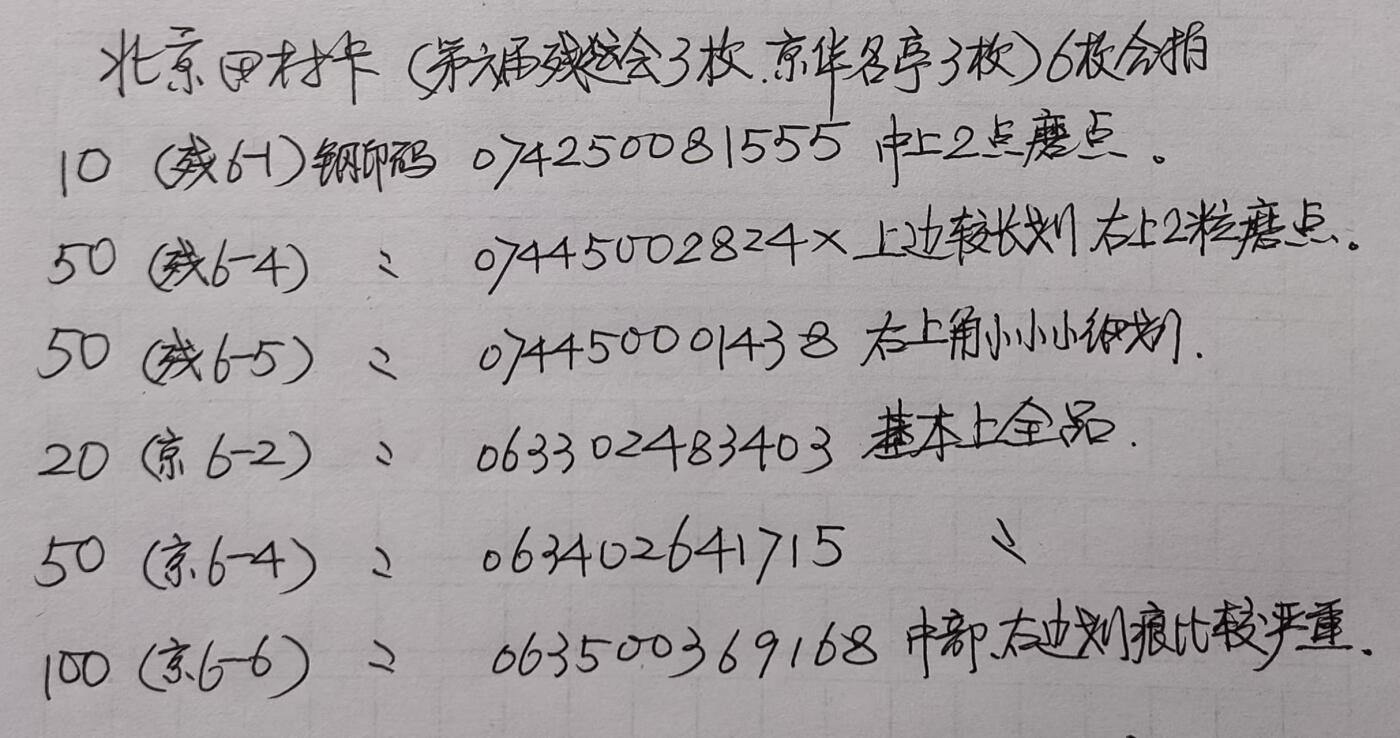 北京田村卡(第六届残运会3枚.京华名亭3枚)6枚合拍
10 (残6-1)钢印码 074250081555 中上2点磨点。
50 (残6-4) 〃 07445002824× 上边较长划 右上2粒磨点。
50 (残6-5) 〃 074450001438 右上角小小小细划.
20 (京6-2) 〃 063302483403 基本上全品.
50 (京.6-4) 〃 063402641715 〃
100 (京.6-6) 〃 063500369168 中部.右边划痕比较严重.